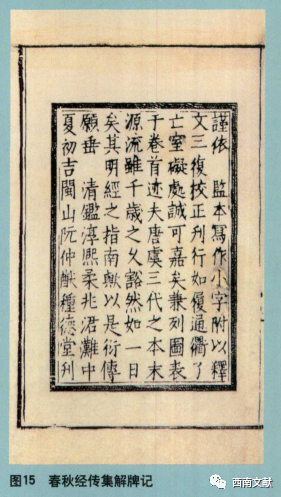 謹依 監本寫作小字附以釋
文三復校正刊行如履通衢了
亡室礙處誠可嘉矣兼列圖表
于卷首迹夫唐虞三代之本末
源流雖千歲之久豁然如一日
矣其明經之指南歟以是衍傳
願垂 清鑑淳熙柔兆涒灘中
夏初吉閩山阮仲猷種德堂刊
图15 春秋经传集解牌记
西南文献